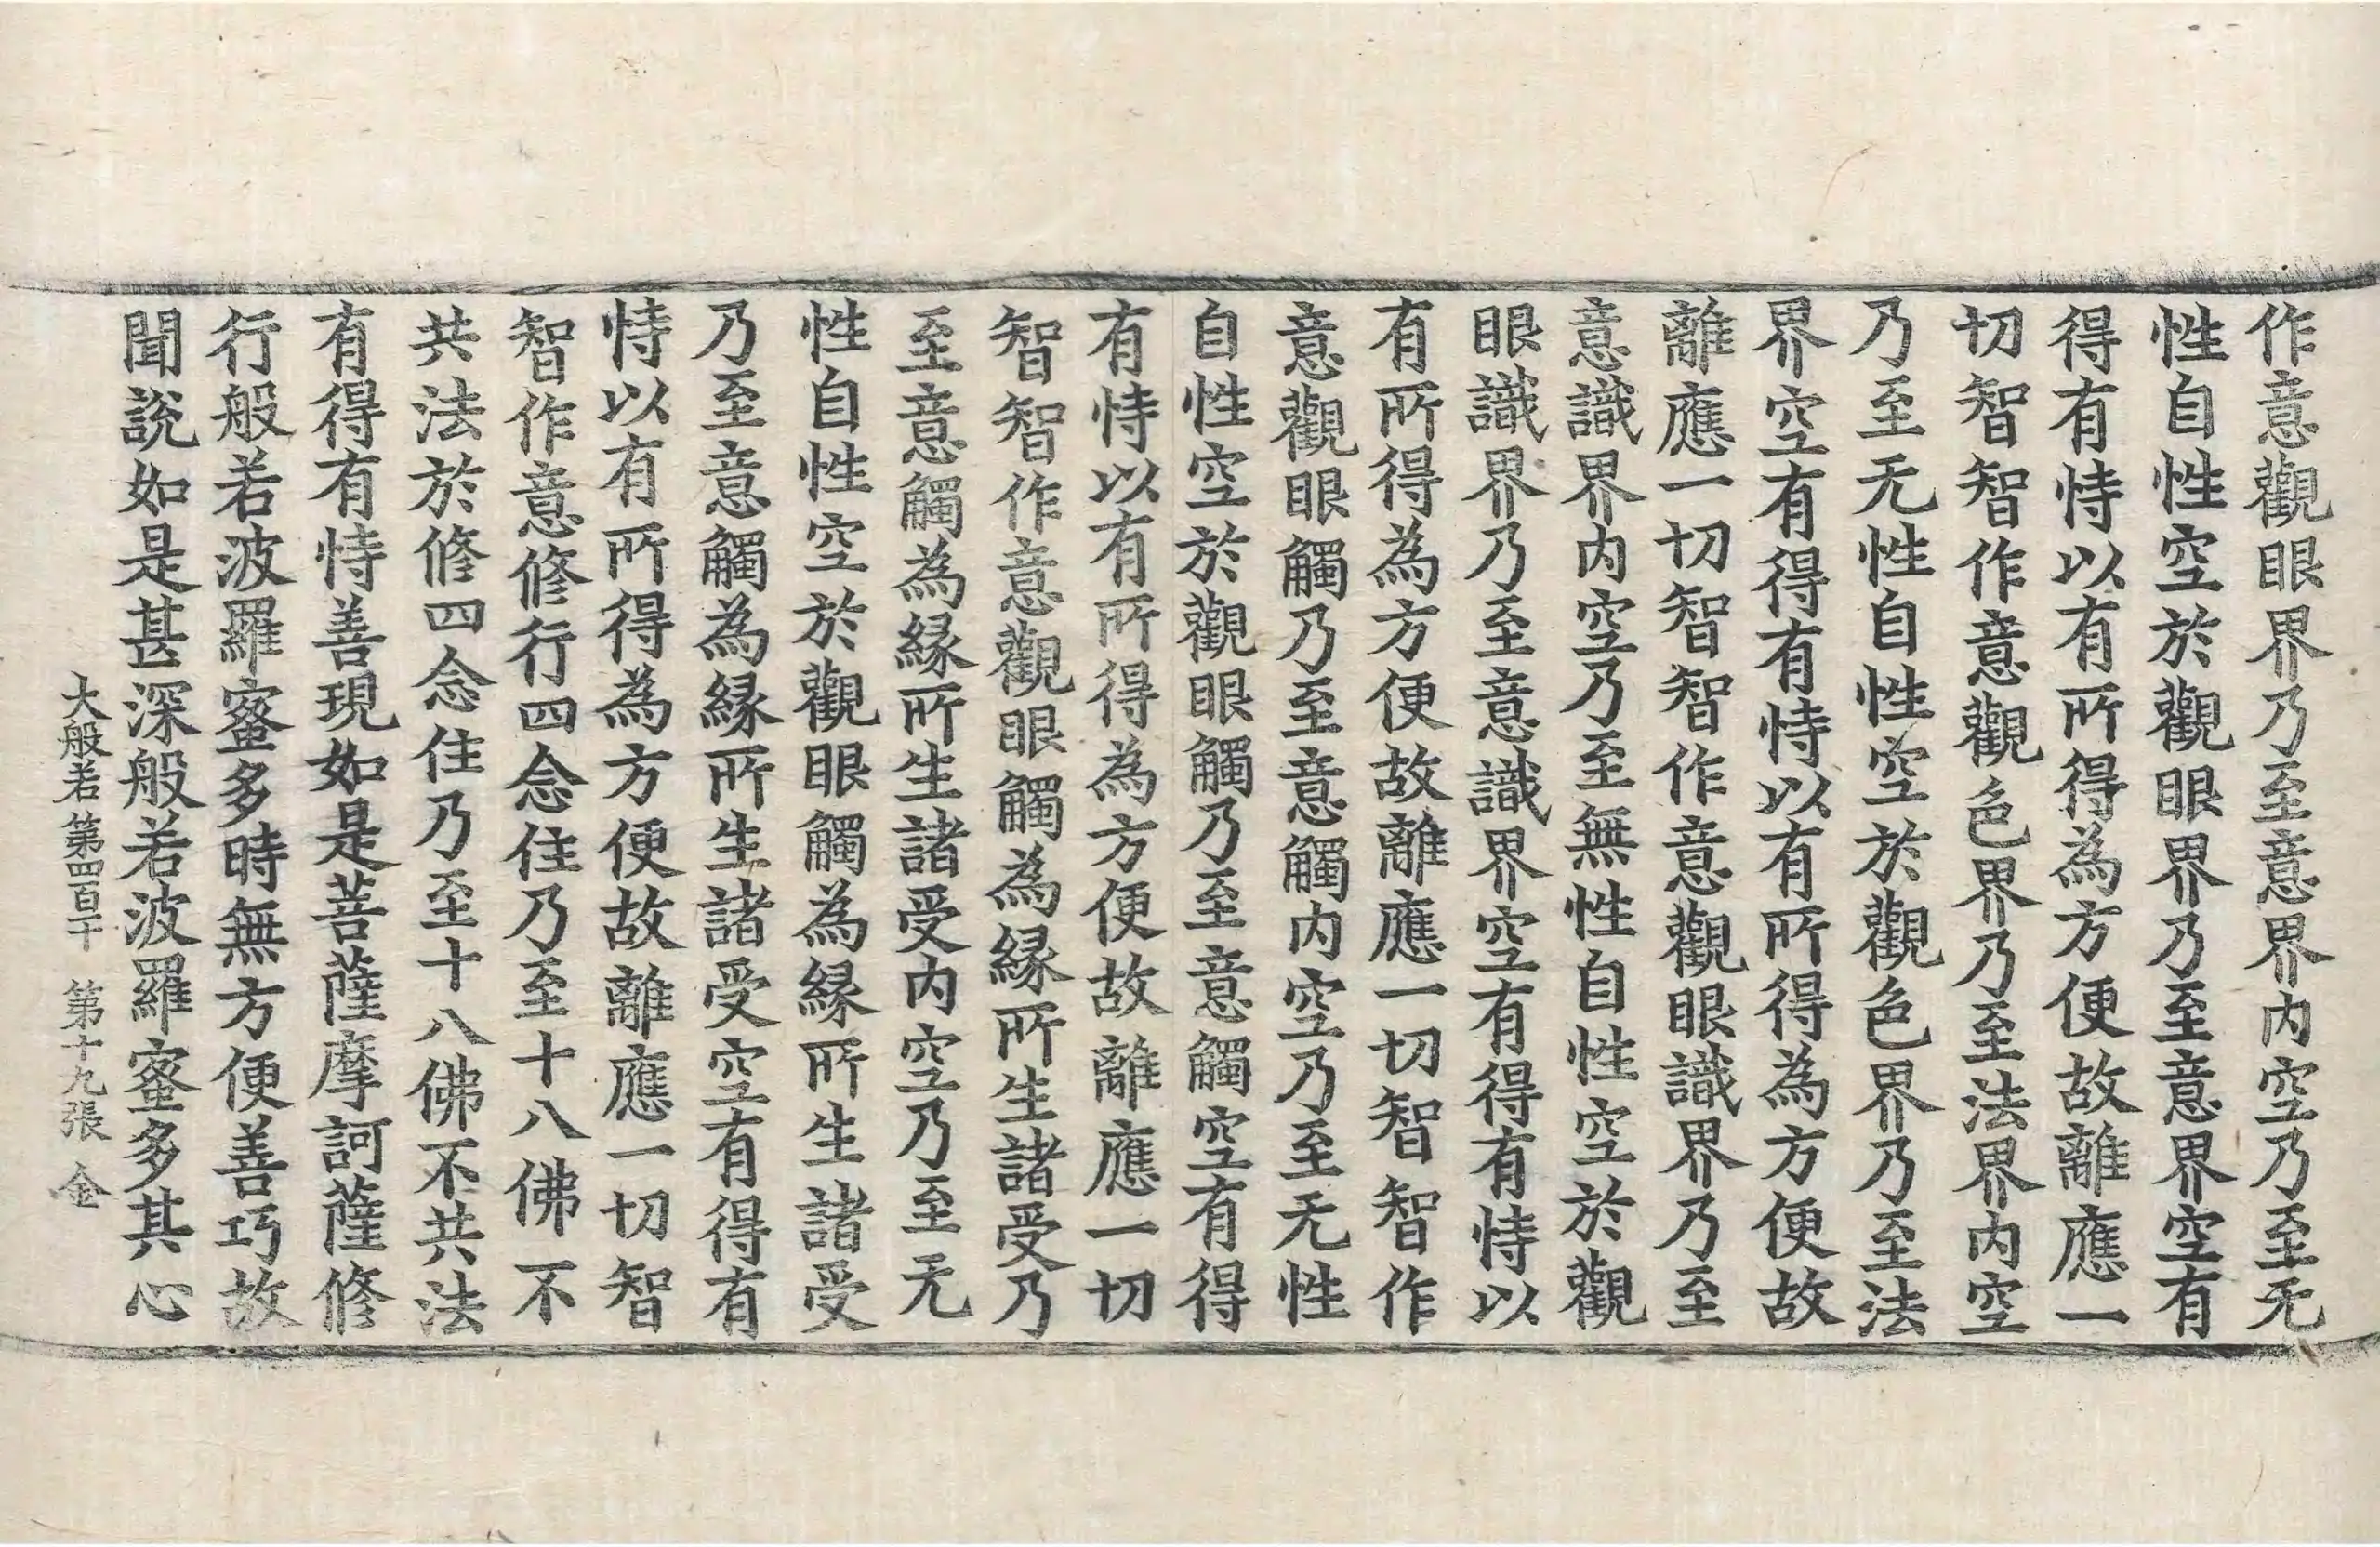 作意觀眼界乃至意界內空乃至无
性自性空於觀眼界乃至意界空有
得有恃以有所得為方便故離應一
切智智作意觀色界乃至法界內空
乃至无性自性空於觀色界乃至法
界空有得有恃以有所得為方便故
離應一切智智作意觀眼識界乃至
意識界內空乃至無性自性空於觀
眼識界乃至意識界空有得有恃以
有所得為方便故離應一切智智作
意觀眼觸乃至意觸內空乃至无性
自性空於觀眼觸乃至意觸空有得
有恃以有所得為方便故離應一切
智智作意觀眼觸為緣所生諸受乃
至意觸為緣所生諸受內空乃至无
性自性空於觀眼觸為緣所生諸受
乃至意觸為緣所生諸受空有得有
恃以有所得為方便故離應一切智
智作意修行四念住乃至十八佛不
共法於修四念住乃至十八佛不共法
有得有恃善現如是菩薩摩訶薩修
行般若波羅蜜多時無方便善巧故
聞說如是甚深般若波羅蜜多其心
大般若第四百十 第十九張 金